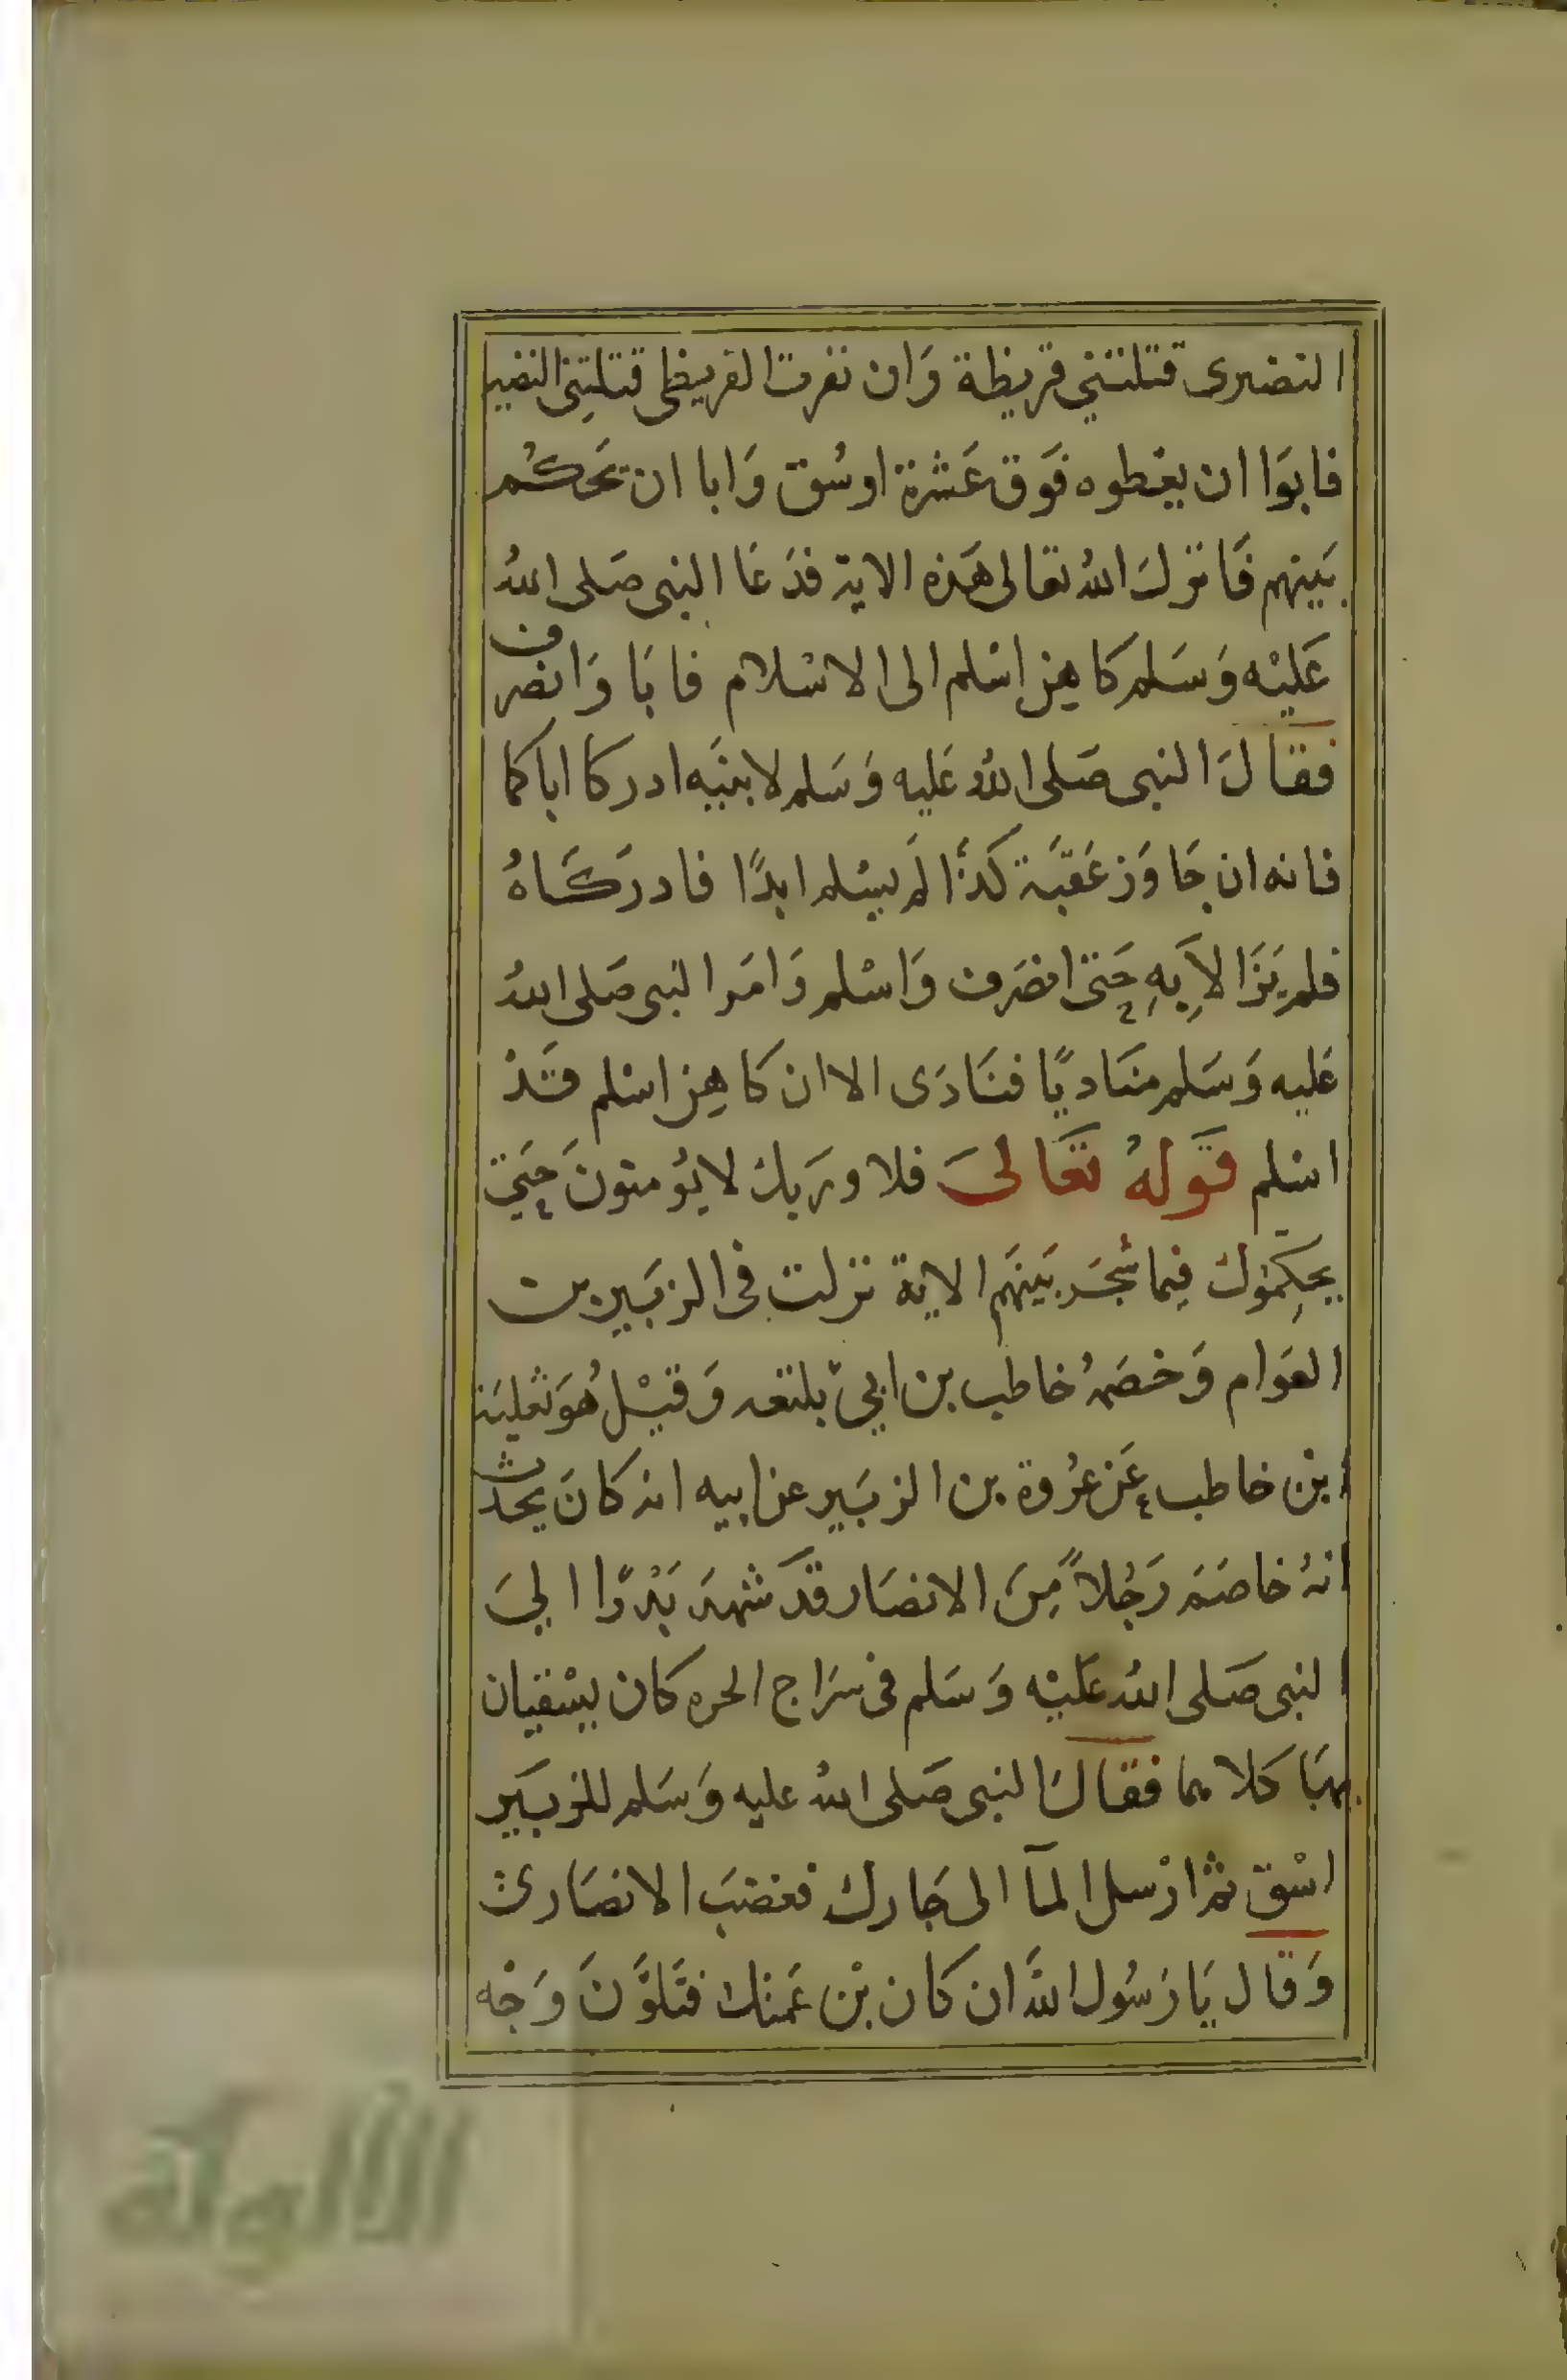 النضيرى قتلتني قريظة وَان نفرت القريظى قتلتِنى النضير
فابوَا ان يعْطوه فَوق عَشرة اوسُق وَابا ان يَحكُم
بَينهم فَانزلَ اللهُ تعالى هَذه الاية فدَعَا النبى صَلى اللهُ
عَليْه وَسَلم كاهِن اسْلم الى الاسْلام فابَا وَانصرف
فقالَ النبى صَلى اللهُ عَليه وَسَلم لابنيَه ادركا اباكما
فانه ان جَاوَز عَقبَة كذَا لَم يسْلم ابدًا فادركَاهُ
فلم يَزَالاَ بِهِ حَتى انصَرف وَاسْلم وَامَر النبى صَلى اللهُ
عَليه وَسَلم منَاديًا فنَادَى الا ان كاهِن اسْلم قَدْ
اسْلم قَولهُ تَعَالىَ فلا وربك لا يُومنونَ حَتى
يحكِموُك فيما شجَر بَينهَم الاية نزلت فى الزبَير بن
العَوام وَخصَمهُ خاطب بن ابي بلتعه وَقيْل هُوَ ثعلبَة
بْن خاطب عَن عرُوة بن الزبَير عن ابيه انه كانَ يحدث
انهُ خاصَمَ رَجُلاً مِنَ الانصَار قدَ شهدَ بَدْرًا الىَ
النبى صَلى اللهُ عَليْه وَسَلم فى سرَاج الحره كان يسْقيان
بهَا كلاهما فقالَ النبى صَلى اللهُ عليه وَسَلم للزبَير
اسْق ثم ارْسل المآ الى جَارك فغضبَ الانصَارى
وَقال يَا رَسُول اللهَ ان كان بْن عَمتك فتَلوَّنَ وَجْه
الألوكة